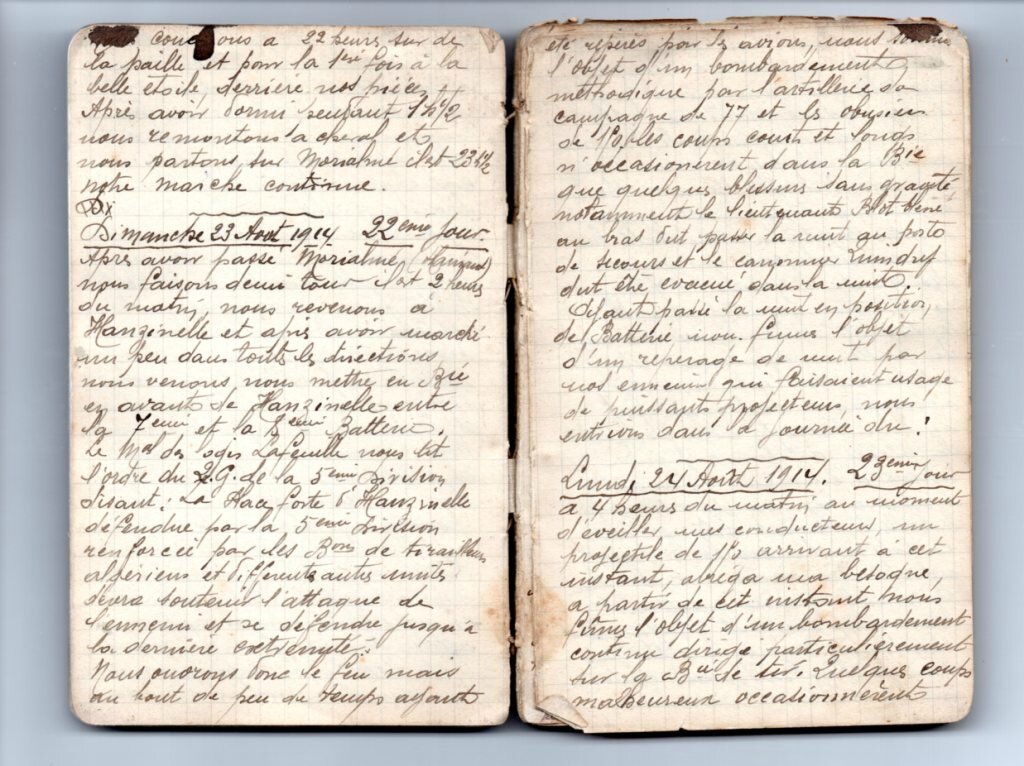 couchons a 22 heures sur de
la paille et pour la 1ère fois à la
belle étoile, derrière nos pièces.
Après avoir dormi pendant 1h1/2
nous remontons a cheval et
nous partons, sur Morialmé il est 23h1/2
notre marche continue.
Di
Dimanche 23 Août 1914 22ème jour.
Après avoir passé Morialmé (Hainaut)
nous faisons demi tour il est 2 heures
du matin, nous revenons à
Hanzinelle et apres avoir marché
un peu dans toutes les directions
nous venons nous mettre en Bie
en avant de Hanzinelle entre
la 7ème et la 8ème Batterie.
Le Mal des logis Lafeuille nous lit
l'ordre du Q.G. de la 5ème Division
disant: La Place forte d'Hanzinelle
défendue par la 5ème Division
renforcée par les Bons de tirailleurs
algériens et différentes autres unités
devra soutenir l'attaque de
l'ennemi et se défendre jusqu'à
la dernière extrémité.
Nous ouvrons donc le feu mais
au bout de peu de temps ayant
été repérés par les avions, nous sommes
l'objet d'un bombardement
méthodique par l'artillerie de
campagne de 77 et les obusiers
de 150 les coups courts et longs
n'occasionèrent dans la Bie
que quelques blessures sans gravité,
notamment le lieutenant Blot blessé
au bras dut passer la nuit au poste
de secours et le canonnier
dut être évacué dans la nuit.
Ayant passé la nuit en position
de Batterie nous fumes l'objet
d'un repérage de nuit par
nos ennemis qui faisaient usage
de puissants projecteurs, nous
entrions dans la journée du:
Lundi 24 Août 1914. 23ème jour
à 4 heures du matin au moment
d'éveiller mes conducteurs, un
projectile de 150 arrivant à cet
instant, abrégea ma besogne,
a partir de cet instant nous
fûmes l'objet d'un bombardement
continu dirigé particulièrement
sur la Bie de tir. Quelques coups
malheureux occasionnèrent